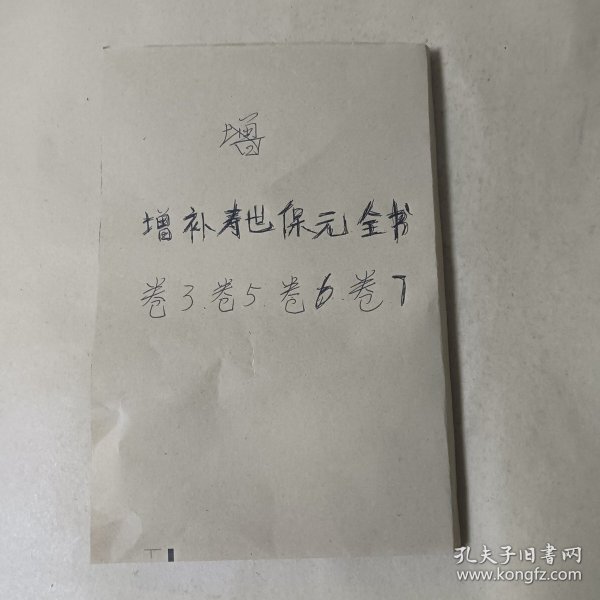 增
增补寿世保元全书
卷3.卷5.卷6.卷7
孔夫子旧书网
www.kongfz.com